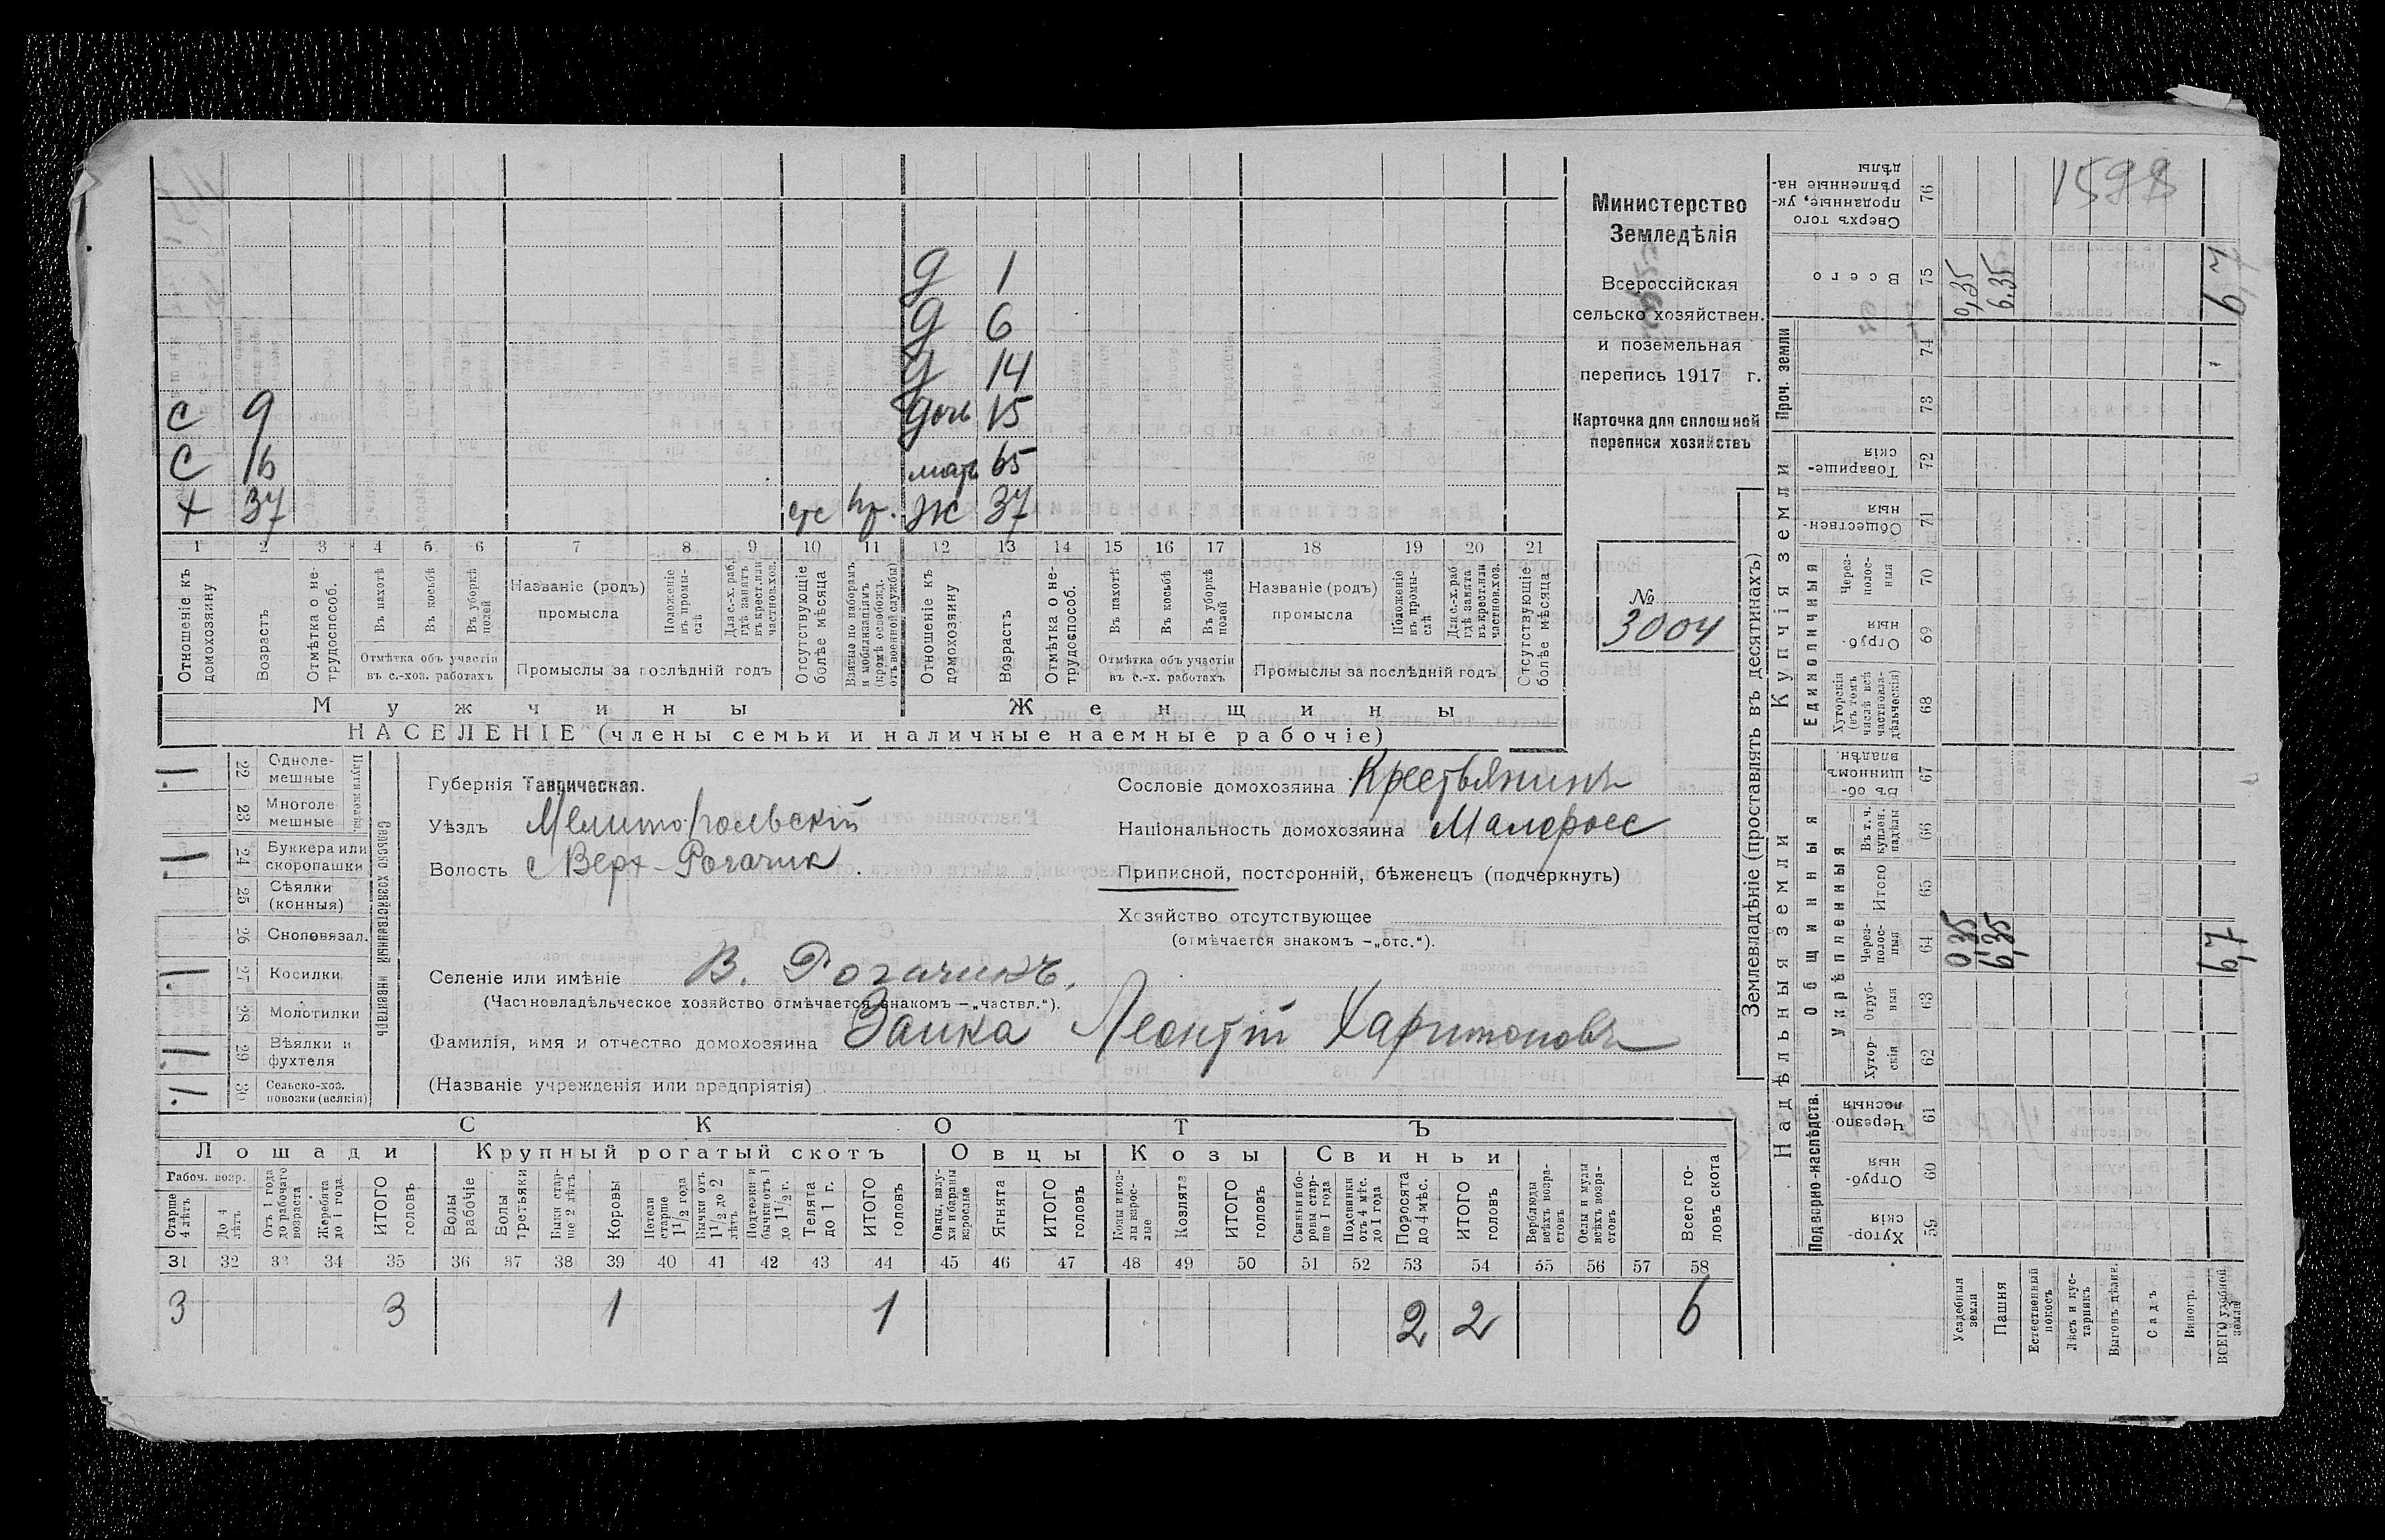 1598
Министерство
Земледѣлія
Всероссійская
сельско хозяйствен.
и поземельная
перепись 1917 г.
Карточка для сплошной
переписи хозяйствъ
№
3004
д 1
д 6
д 14
с 9 дочь 15
с 16 мать 65
х 37 отс нр. ж 37
1 2 3 4 5 6 7 8 9 10 11 12 13 14 15 16 17 18 19 20 21
Отношеніе къ домохозяину
Возрастъ
Отмѣтка о не-трудоспособ.
Въ пахотѣ
Въ косьбѣ
Въ уборкѣ полей
Отмѣтка объ участіи въ с.-хоз. работахъ
Названіе (родъ) промысла
Положеніе въ промы-слѣ
Для с.-х. раб. гдѣ занятъ въ крест. или частнов. хоз.
Промыслы за послѣдній годъ
Отсутствующіе болѣе мѣсяца
Взятые по наборамъ и мобилизаціямъ (кромѣ освобожд. отъ военной службы)
Отношеніе къ домохозяину
Возрастъ
Отмѣтка о не-трудоспособ.
Въ пахотѣ
Въ косьбѣ
Въ уборкѣ полей
Отмѣтка объ участіи въ с.-х. работахъ
Названіе (родъ) промысла
Положеніе въ промы-слѣ
Для с.-х. раб гдѣ занята въ крест. или частнов. хоз.
Промыслы за послѣдній годъ
Отсутствующіе болѣе мѣсяца
Мужчины Женщины
НАСЕЛЕНІЕ (члены семьи и наличные наемные рабочіе)
Сельско хозяйственный инвентарь
22 Одноле-мешные 1
23 Многоле мешные
24 Буккера или скоропашки 1
25 Сѣялки (конныя)
26 Сноповязал.
27 Косилки 1
28 Молотилки
29 Вѣялки и фухтеля 1
30 Сельско-хоз. повозки (всякія) 1
Губернія Таврическая.
Уѣздъ Мелитопольскій
Волость с Верх-Рогачик
Сословіе домохозяина Крестьянинъ
Національность домохозяина Малоросс
Приписной, посторонній, бѣженецъ (подчеркнуть)
Хозяйство отсутствующее
(отмѣчается знакомъ —„отс.“).
Селеніе или имѣніе В. Рогачикъ.
(Частновладѣльческое хозяйство отмѣчается знакомъ —„частвл.“).
Фамилія, имя и отчество домохозяина Заика Леонтій Харитоновъ
(Названіе учрежденія или предпріятія)
СКОТЪ
Лошади Крупный рогатый скотъ Овцы Козы Свиньи
Рабоч. возр.
Старше 4 лѣтъ
До 4 лѣтъ
Отъ 1 года до рабочаго возраста
Жеребята до 1 года.
ИТОГО головъ
Волы рабочіе
Волы третьяки
Быки стар-ше 2 лѣтъ
Коровы
Нетели старше 1 1/2 года
Бычки отъ 1 1/2 до 2 лѣтъ
Подтелки и бычки отъ 1 до 1 1/2 г.
Телята до 1 г.
ИТОГО головъ
Овцы, валу-хи и бараны взрослые
Ягнята
ИТОГО головъ
Козы и коз-лы взрос-лые
Козлята
ИТОГО головъ
Свиньи и бо-ровы стар-ше 1 года
Подсвинки отъ 4 мѣс. до 1 года
Поросята до 4 мѣс.
ИТОГО головъ
Верблюды всѣхъ возра-стовъ
Ослы и мулы всѣхъ возра-стовъ
Всего го-ловъ скота
31 32 33 34 35 36 37 38 39 40 41 42 43 44 45 46 47 48 49 50 51 52 53 54 55 56 57 58
3 3 1 1 2 2 6
Землевладѣніе (проставлять въ десятинахъ)
Надѣльныя земли
Купчія земли
Проч. земли
Подворно-наслѣдств.
Общинныя
Укрѣпленныя
Единоличныя
Хутор-скія 59
Отруб-ныя 60
Черезпо лосныя 61
Хутор-скія 62
Отруб-ныя 63
Черезъ-полос-ныя 64
Итого 65
Въ т. ч. куплен. надѣлы 66
Въ об-щинномъ владѣн. 67
Хуторскія (въ томъ числѣ всѣ частновла-дѣльческія) 68
Отруб-ныя 69
Через-полос-ныя 70
Обществен-ныя 71
Товарище-скія 72
73
74
Всего 75
Сверхъ того проданные, ук-рѣпленные на-дѣлы 76
Усадебныя земли 0,35 0,35
Пашня 6,35 6,35
Естественный покосъ
Лѣсъ и кус-тарникъ
Выгонъ дѣлив.
Садъ
Виногр.
ВСЕГО удобной земли 6,7 6,7